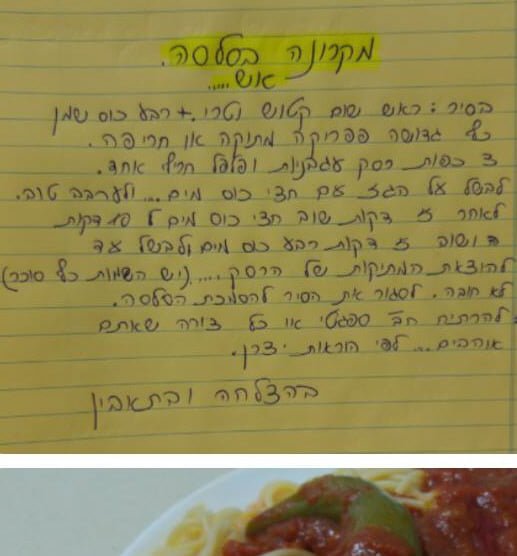 מקרונה בסלסה.
אש.....
בסיר: ראש שום קטוש וטרי. + רבע כוס שמן
כף גדושה פפריקה מתוקה או חריפה.
3 כפות רסק עגבניות ופלפל חריף אחד.
לבשל על הגז עם חצי כוס מים... ולערבב טוב.
לאחר 5 דקות שוב חצי כוס מים ל 10 דקות
ושוב 5 דקות רבע כוס מים ולבשל עד
להוצאת המתיקות של הרסק..... (יש השמות כף סוכר)
לא חובה. לסגור את הסיר להסמכת הסלסה.
להרתיח חב' ספגטי או כל צורה שאתם
אוהבים... לפי הוראות יצרן.
בהצלחה ובתאבון